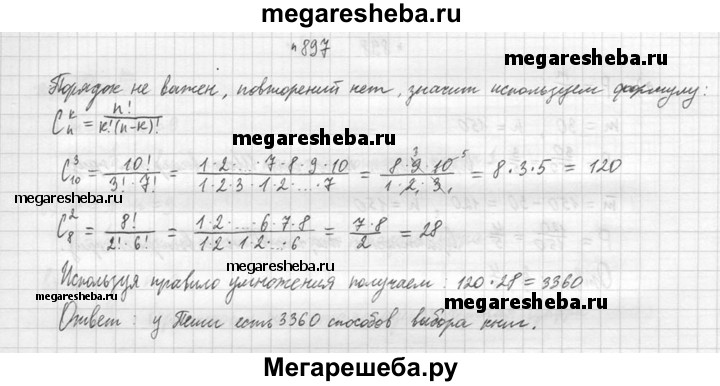 megaresheba.ru
№897
megaresheba.ru
Порядок не важен, повторений нет, значит используем формулу:
C_n^k = n! / k!(n-k)!
megaresheba.ru
C_10^3 = 10! / 3!·7! = 1·2·...·7·8·9·10 / 1·2·3·1·2·...·7 = 8·9·10 / 1·2·3 = 8·3·5 = 120
megaresheba.ru
megaresheba.ru
C_8^2 = 8! / 2!·6! = 1·2·...·6·7·8 / 1·2·1·2·...·6 = 7·8 / 2 = 28
megaresheba.ru
Используя правило умножения получаем: 120·28 = 3360
megaresheba.ru
megaresheba.ru
Ответ: у Пети есть 3360 способов выбора книг.
Мегарешеба.ру